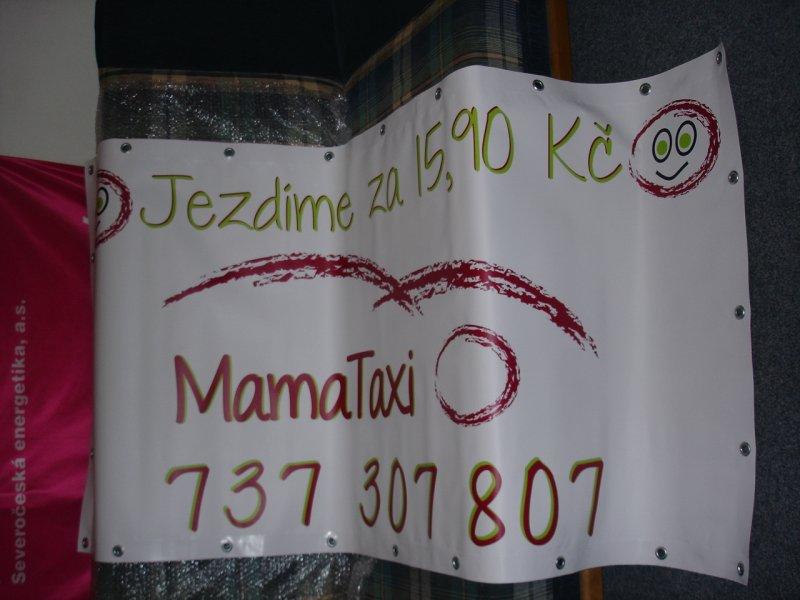 Jezdíme za 15,90 Kč
MamaTaxi
737 307 807
Severočeská energetika, a.s.